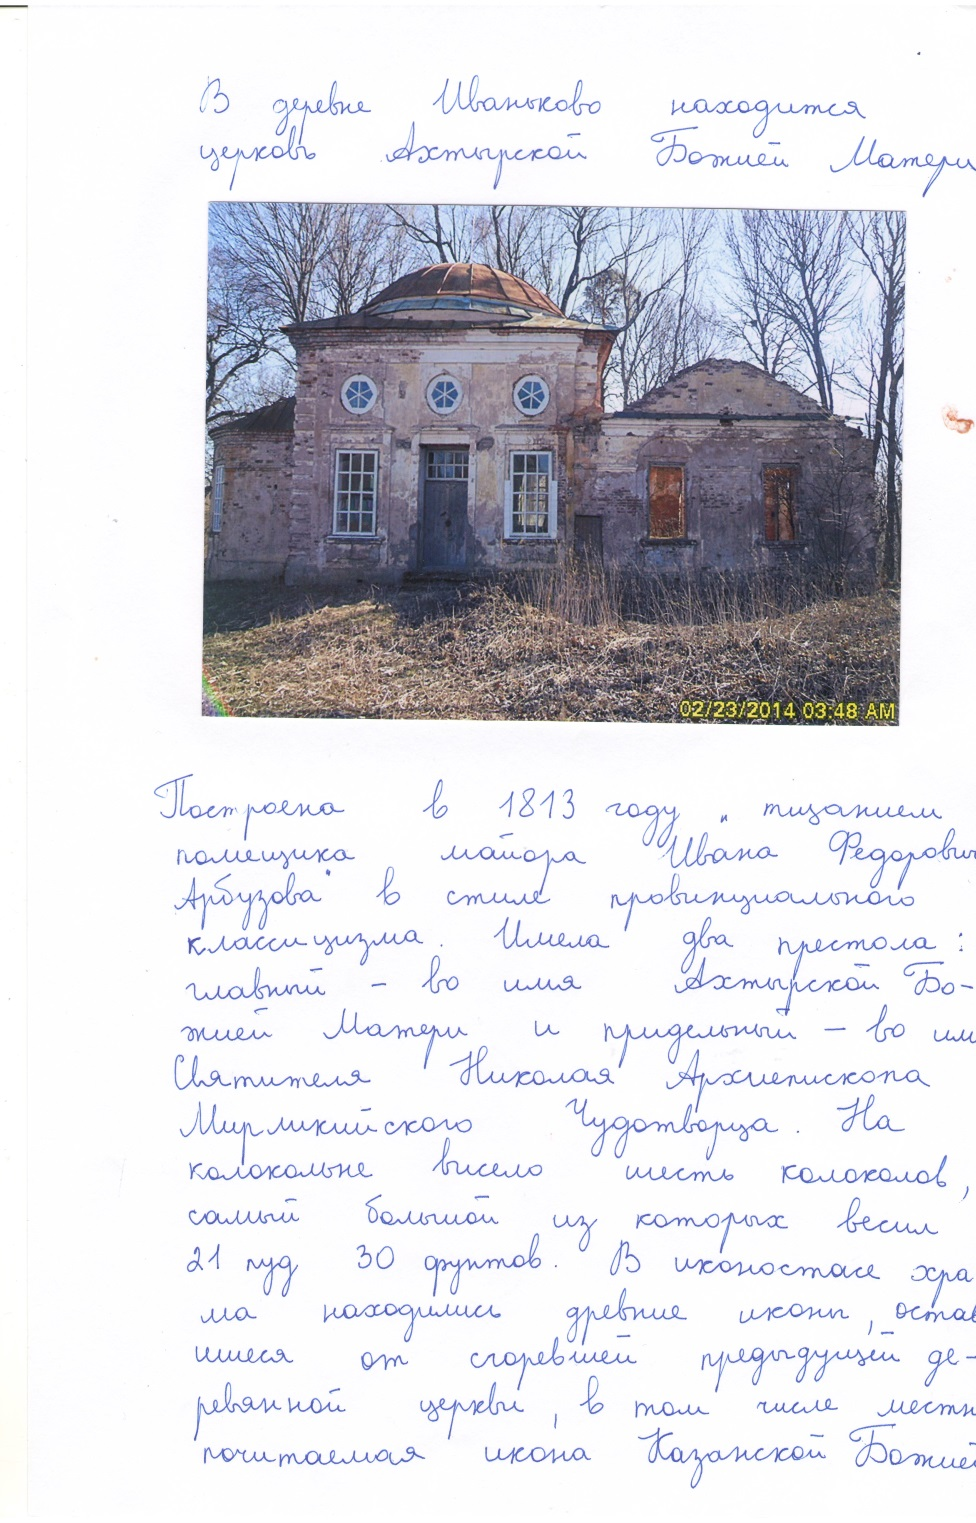 В деревне Иваньково находится
церковь Ахтырской Божией Матери
02/23/2014 03:48 AM
Построена в 1813 году „тщанием
помещика майора Ивана Федорович
Арбузова" в стиле провинциального
классицизма. Имела два престола:
главный - во имя Ахтырской Бо-
жией Матери и придельный - во им
Святителя Николая Архиепископа
Мирликийского Чудотворца. На
колокольне висело шесть колоколов,
самый большой из которых весил
21 пуд 30 фунтов. В иконостасе хра
ма находились древние иконы, остав
шиеся от сгоревшей предыдущей де-
ревянной церкви, в том числе местн
почитаемая икона Казанской Божией